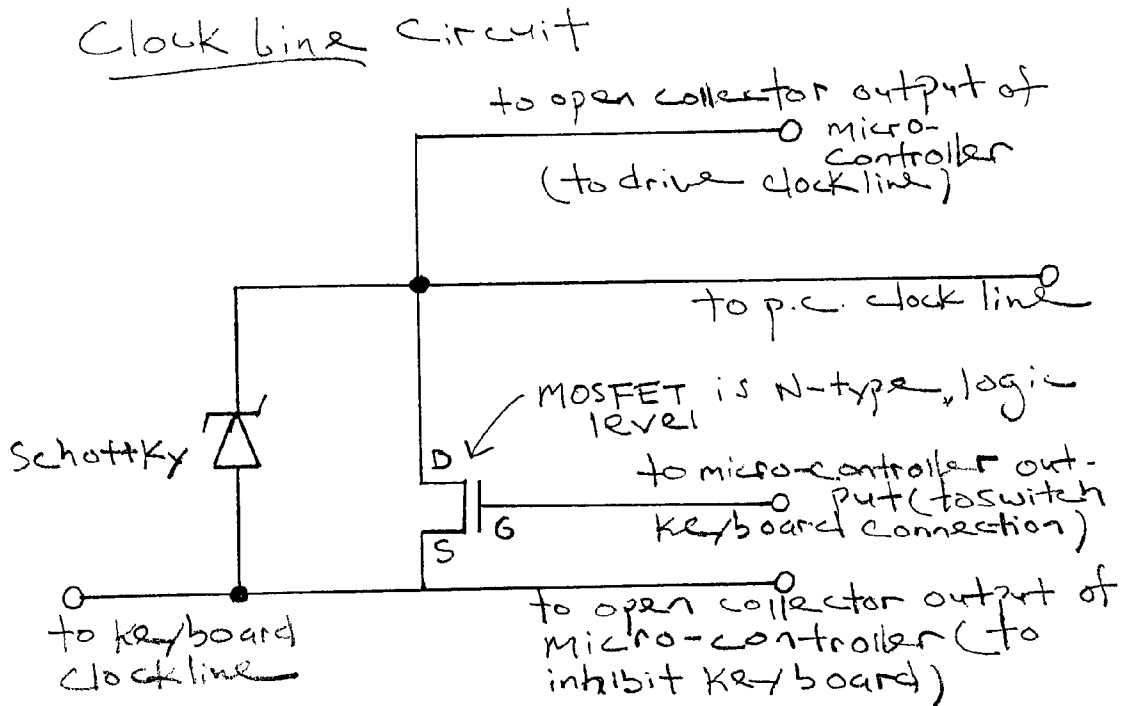 Clock Line Circuit
to open collector output of
micro-
controller
(to drive clock line)
to p.c. clock line
MOSFET is N-type, logic
level
Schottky
D
to micro-controller out-
put (to switch
G
keyboard connection)
S
to keyboard
clock line
to open collector output of
micro-controller (to
inhibit keyboard)